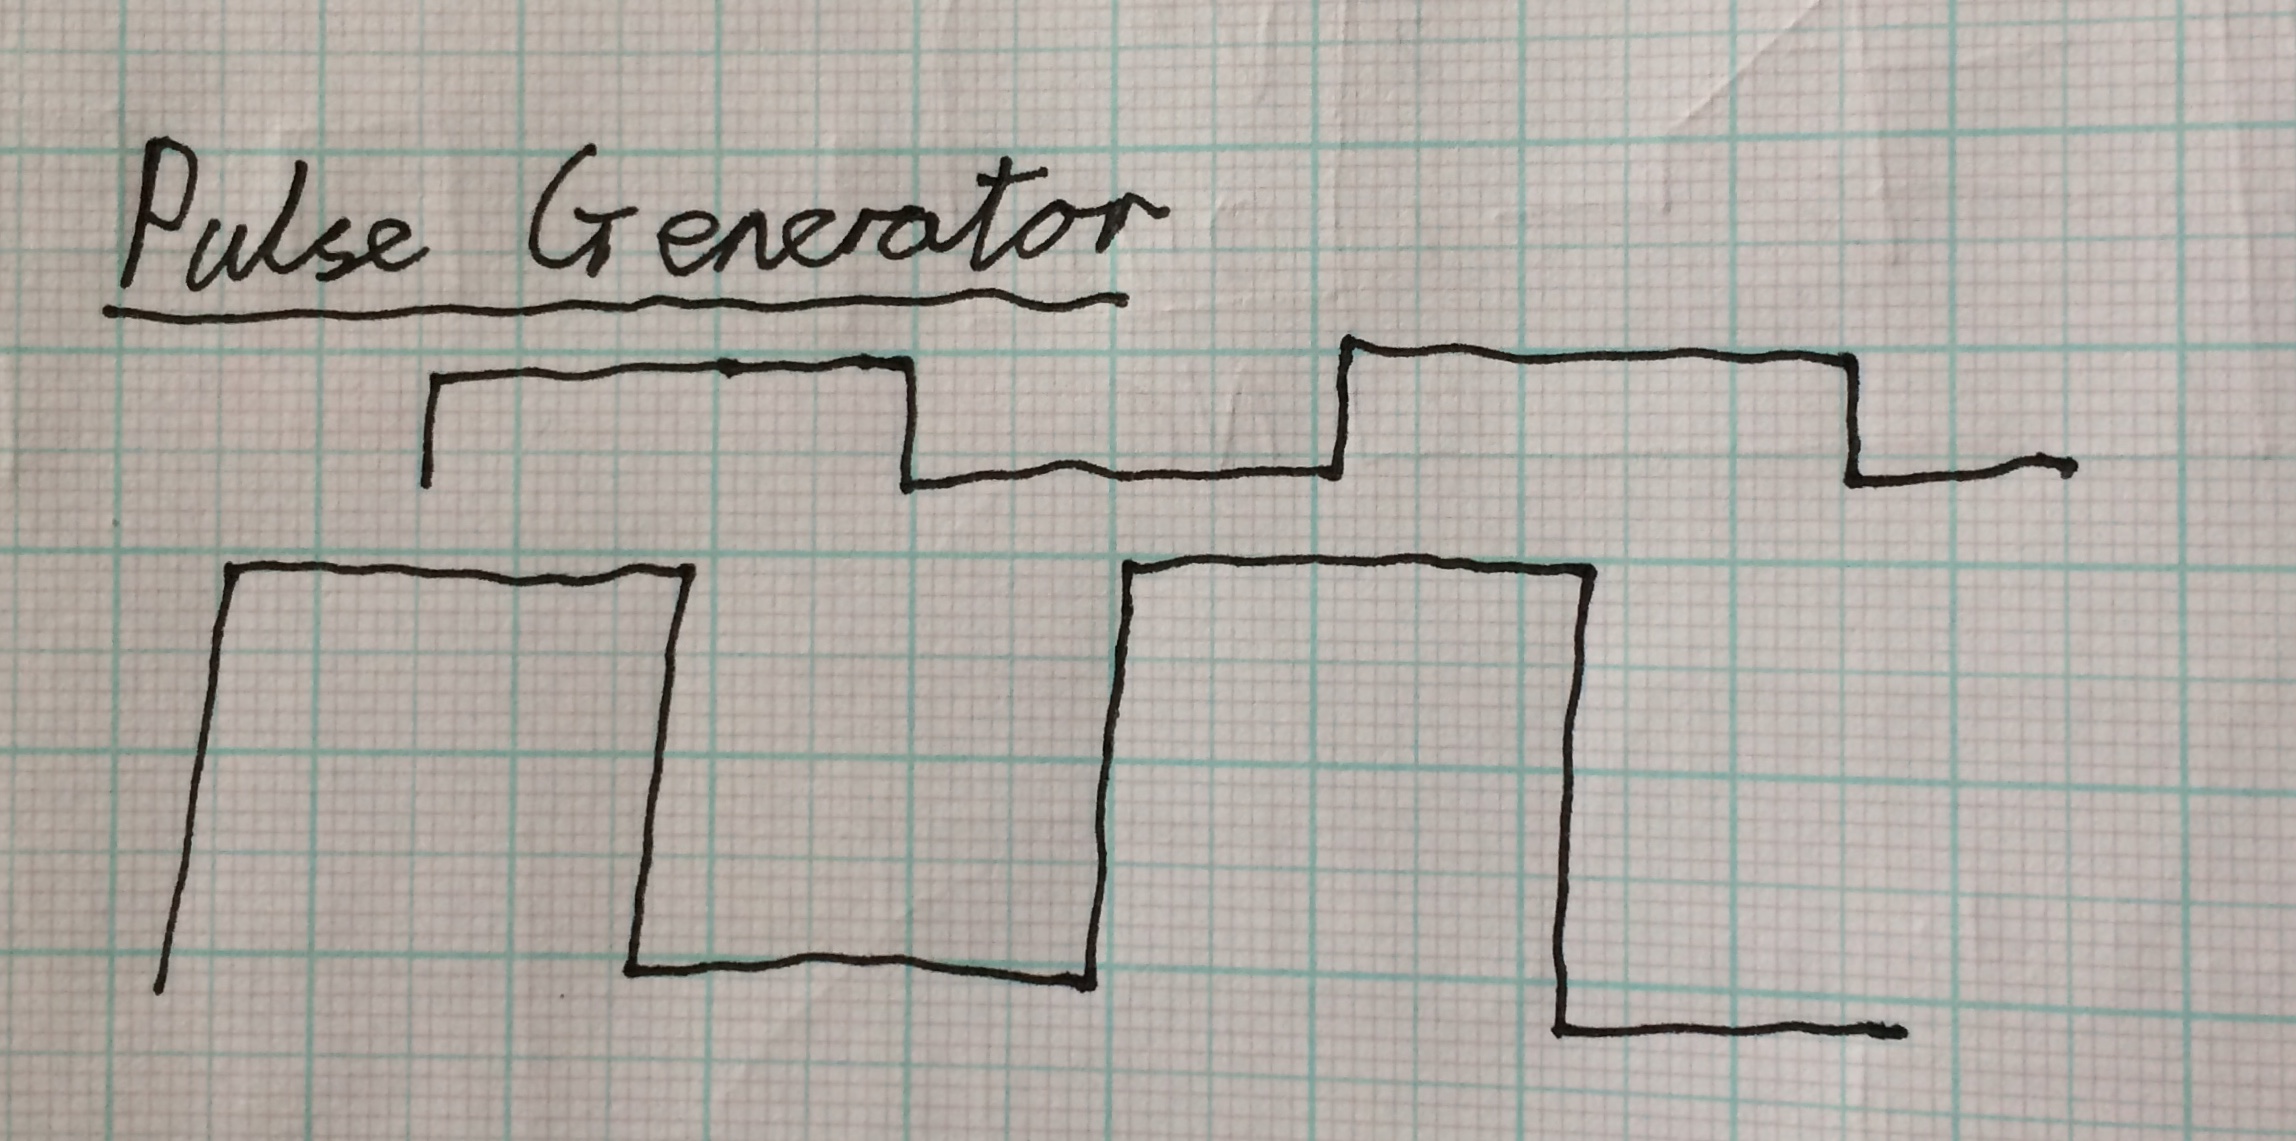 Pulse Generator